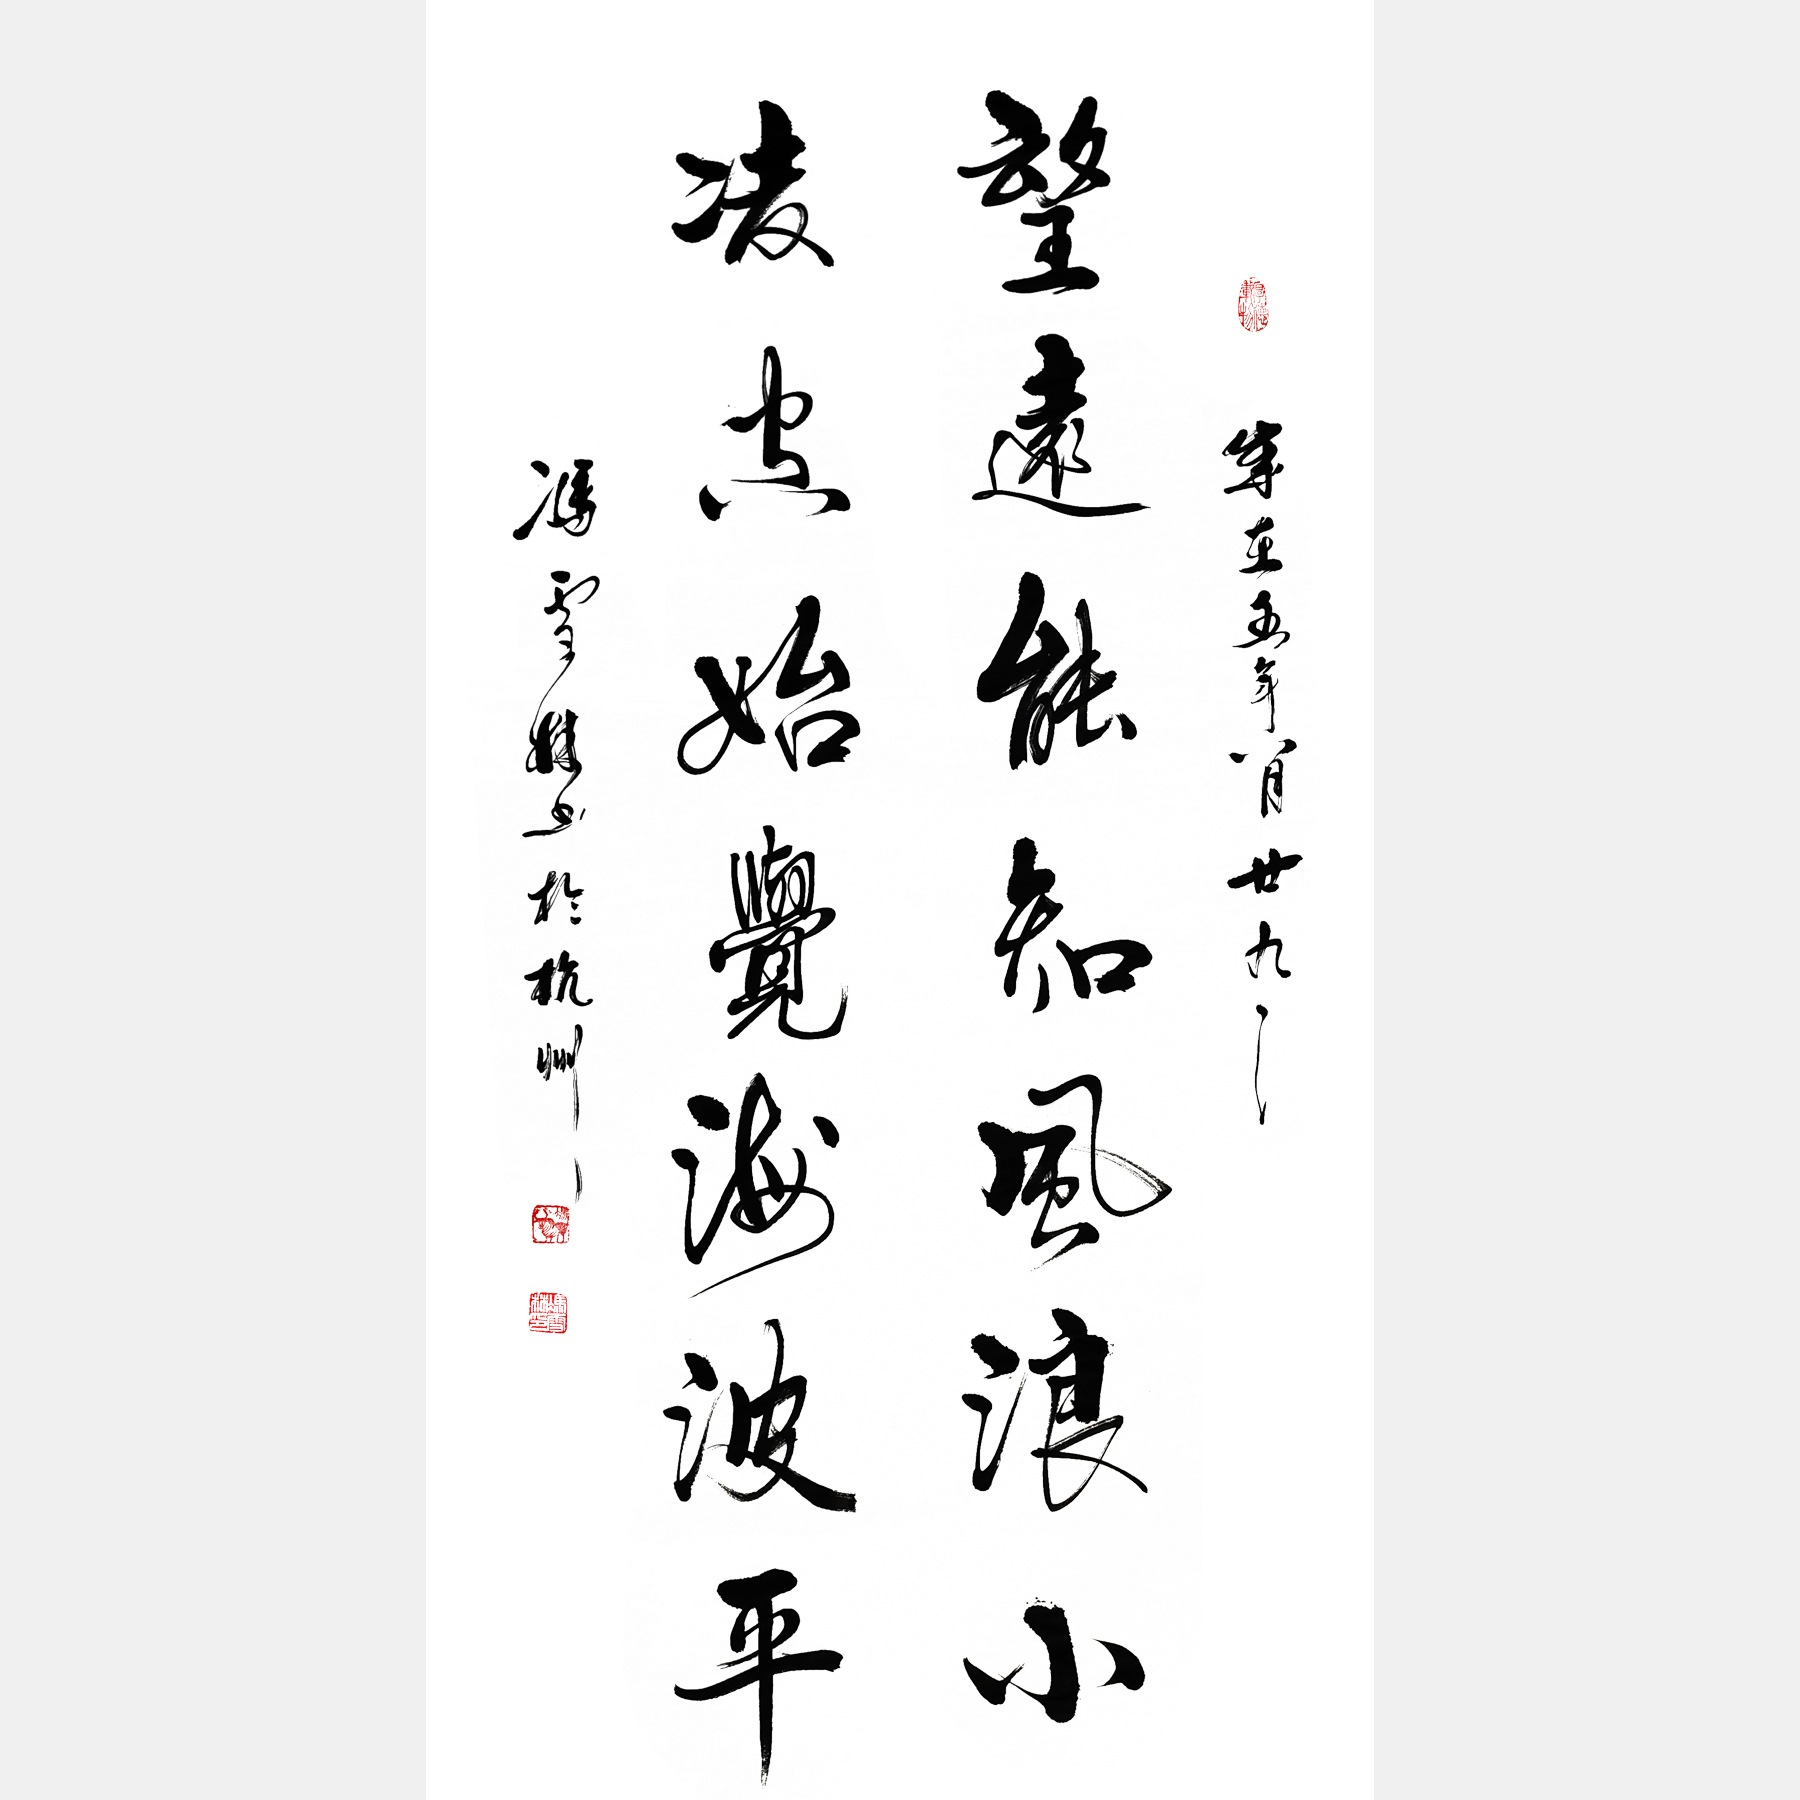 歲在五年八月廿九日
望遠能知風浪小
凌空始覺海波平
馮雪林書於杭州